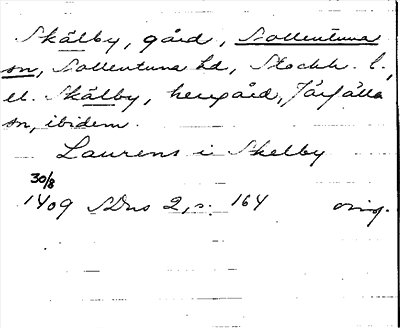 Skälby, gård, Sollentuna
sn, Sollentuna hd, Stockh. l.,
el. Skälby, herrgård, Järfälla
sn, ibidem.
Laurens i Skelby
30/8
1409 SDns 2, s. 164 orig.